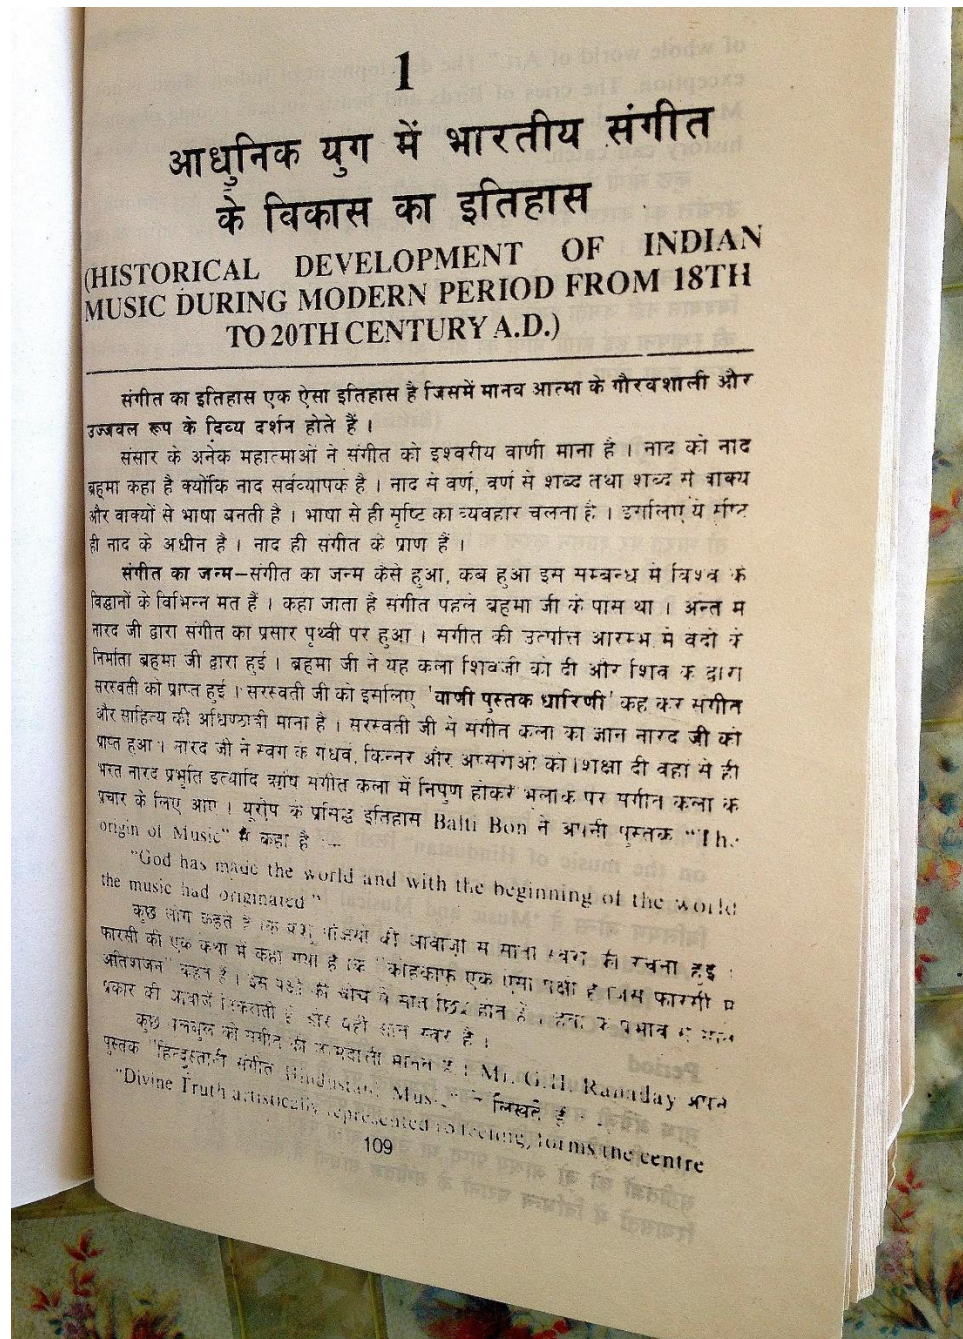 1
आधुनिक युग में भारतीय संगीत
के विकास का इतिहास
(HISTORICAL DEVELOPMENT OF INDIAN
MUSIC DURING MODERN PERIOD FROM 18TH
TO 20TH CENTURY A.D.)
संगीत का इतिहास एक ऐसा इतिहास है जिसमें मानव आत्मा के गौरवशाली और
उज्जवल रूप के दिव्य दर्शन होते हैं ।
संसार के अनेक महात्माओं ने संगीत को इश्वरीय वाणी माना है । नाद को नाद
ब्रह्मा कहा है क्योंकि नाद सर्वव्यापक है । नाद से वर्ण, वर्ण से शब्द तथा शब्द से वाक्य
और वाक्यों से भाषा बनती है । भाषा से ही सृष्टि का व्यवहार चलता है । इसलिए ये सृष्टि
ही नाद के अधीन है । नाद ही संगीत के प्राण हैं ।
संगीत का जन्म–संगीत का जन्म कैसे हुआ, कब हुआ इस सम्बन्ध में विश्व के
विद्वानों के विभिन्न मत हैं । कहा जाता है संगीत पहले ब्रह्मा जी के पास था । अन्त में
नारद जी द्वारा संगीत का प्रसार पृथ्वी पर हुआ । संगीत की उत्पत्ति आरम्भ में वेदों के
निर्माता ब्रह्मा जी द्वारा हुई । ब्रह्मा जी ने यह कला शिवजी को दी और शिव के द्वारा
सरस्वती को प्राप्त हुई । सरस्वती जी को इसलिए 'वाणी पुस्तक धारिणी' कह कर संगीत
और साहित्य की अधिष्ठात्री माना है । सरस्वती जी से संगीत कला का ज्ञान नारद जी को
प्राप्त हुआ । नारद जी ने स्वर्ग के गंधर्व, किन्नर और अप्सराओं को शिक्षा दी वहां से ही
भरत नारद प्रभृति इत्यादि ऋषि संगीत कला में निपुण होकर भूलोक पर संगीत कला के
प्रचार के लिए आए । यूरोप के प्रसिद्ध इतिहास Balti Bon ने अपनी पुस्तक "The
origin of Music" में कहा है :–
"God has made the world and with the beginning of the world
the music had originated."
कुछ लोग कहते हैं कि पशु पक्षियों की आवाज़ों से सात स्वरों की रचना हुई ।
फारसी की एक कथा में कहा गया है कि "कोहकाफ़ एक ऐसा पक्षी है जिसे फारसी में
अतिशजन" कहते हैं । इस पक्षी की चोंच में सात छिद्र होते हैं । हवा के प्रभाव से सात
प्रकार की आवाजें निकलती हैं और यही सात स्वर हैं ।
कुछ बुलबुल को संगीत की जन्मदात्री मानते हैं । Mr. G.H. Ranaday अपने
पुस्तक "हिन्दुस्तानी संगीत Hindustani Music" में लिखते हैं
"Divine Truth artistically represented to feeling, forms the centre
109